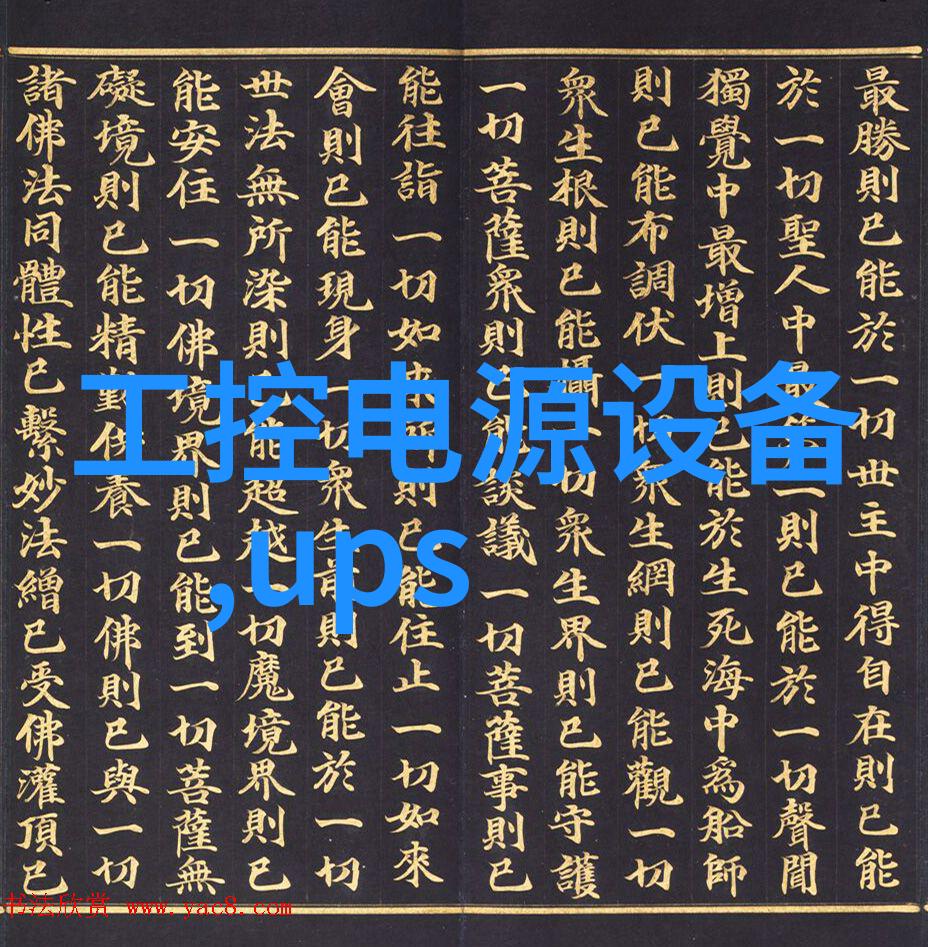 最勝則已能於一切世主中得自在則已能
於一切聖人中最第一則已能於一切聲聞
獨覺中最增上則已能於生死海中爲船師
則已能布調伏一切衆生網則已能觀一切
衆生根則已能攝一切衆生界則已能守護
一切菩薩衆則已能談議一切菩薩事則已
能往詣一切如來所則已能住止一切如來
會則已能現身一切衆生前則已能於一切
世法無所染則已能超越一切魔境界則已
能安住一切佛境界則已能到一切菩薩無
礙境則已能精勤供養一切佛則已與一切
諸佛法同體性已繫妙法繒已受佛灌頂已
工控电源设备
,ups
书法欣赏 www.yac8.com